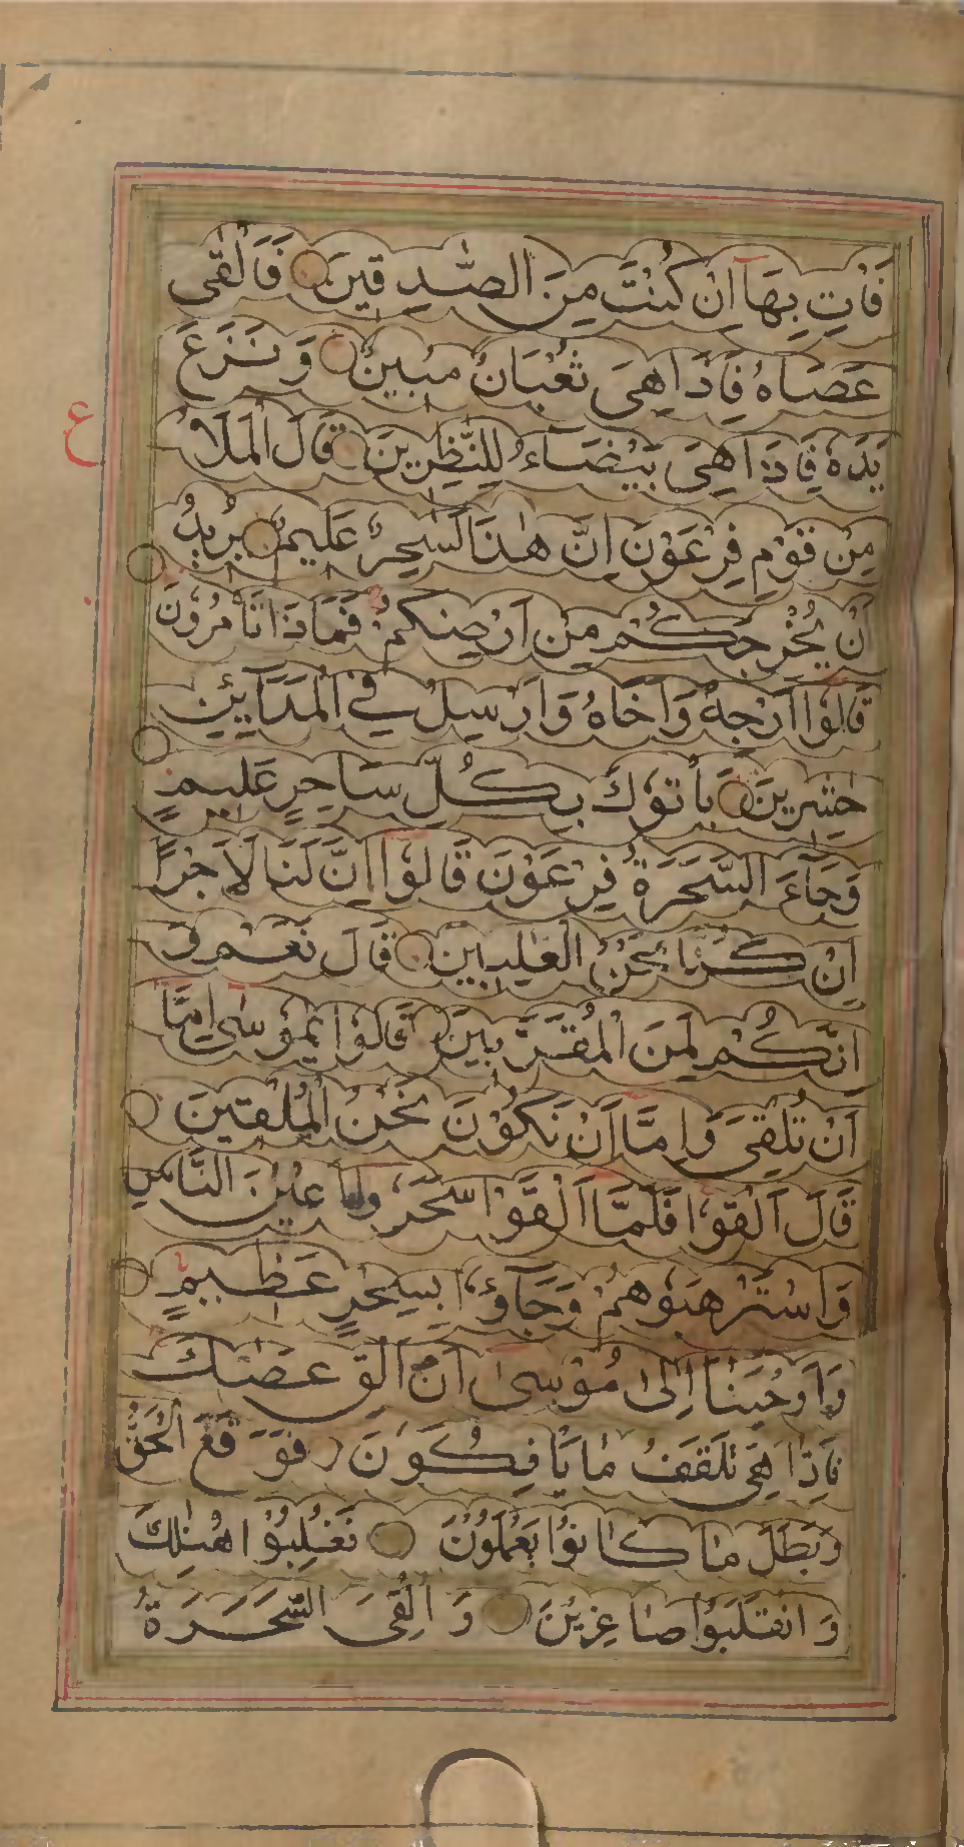 فَاْتِ بِهَآ اِنْ كُنْتَ مِنَ الصّٰدِقِيْنَ فَاَلْقٰى
عَصَاهُ فَاِذَا هِىَ ثُعْبَانٌ مُبِيْنٌ وَنَزَعَ
يَدَهٗ فَاِذَا هِىَ بَيْضَآءُ لِلنّٰظِرِيْنَ قَالَ الْمَلَاُ
مِنْ قَوْمِ فِرْعَوْنَ اِنَّ هٰذَا لَسٰحِرٌ عَلِيْمٌ يُرِيْدُ
اَنْ يُخْرِجَكُمْ مِنْ اَرْضِكُمْ فَمَاذَا تَاْمُرُوْنَ
قَالُوْا اَرْجِهْ وَاَخَاهُ وَاَرْسِلْ فِى الْمَدَآئِنِ
حٰشِرِيْنَ يَاْتُوْكَ بِكُلِّ سَاحِرٍ عَلِيْمٍ
وَجَآءَ السَّحَرَةُ فِرْعَوْنَ قَالُوْا اِنَّ لَنَا لَاَجْرًا
اِنْ كُنَّا نَحْنُ الْغٰلِبِيْنَ قَالَ نَعَمْ وَ
اِنَّكُمْ لَمِنَ الْمُقَرَّبِيْنَ قَالُوْا يٰمُوْسٰى اِمَّا
اَنْ تُلْقِىَ وَاِمَّا اَنْ نَكُوْنَ نَحْنُ الْمُلْقِيْنَ
قَالَ اَلْقُوْا فَلَمَّا اَلْقَوْا سَحَرُوْا اَعْيُنَ النَّاسِ
وَاسْتَرْهَبُوْهُمْ وَجَآءُوْ بِسِحْرٍ عَظِيْمٍ
وَاَوْحَيْنَا اِلٰى مُوْسٰى اَنْ اَلْقِ عَصَاكَ
فَاِذَا هِىَ تَلْقَفُ مَا يَاْفِكُوْنَ فَوَقَعَ الْحَقُّ
وَبَطَلَ مَا كَانُوْا يَعْمَلُوْنَ فَغُلِبُوْا هُنٰلِكَ
وَانْقَلَبُوْا صَاغِرِيْنَ وَاُلْقِىَ السَّحَرَةُ
ع